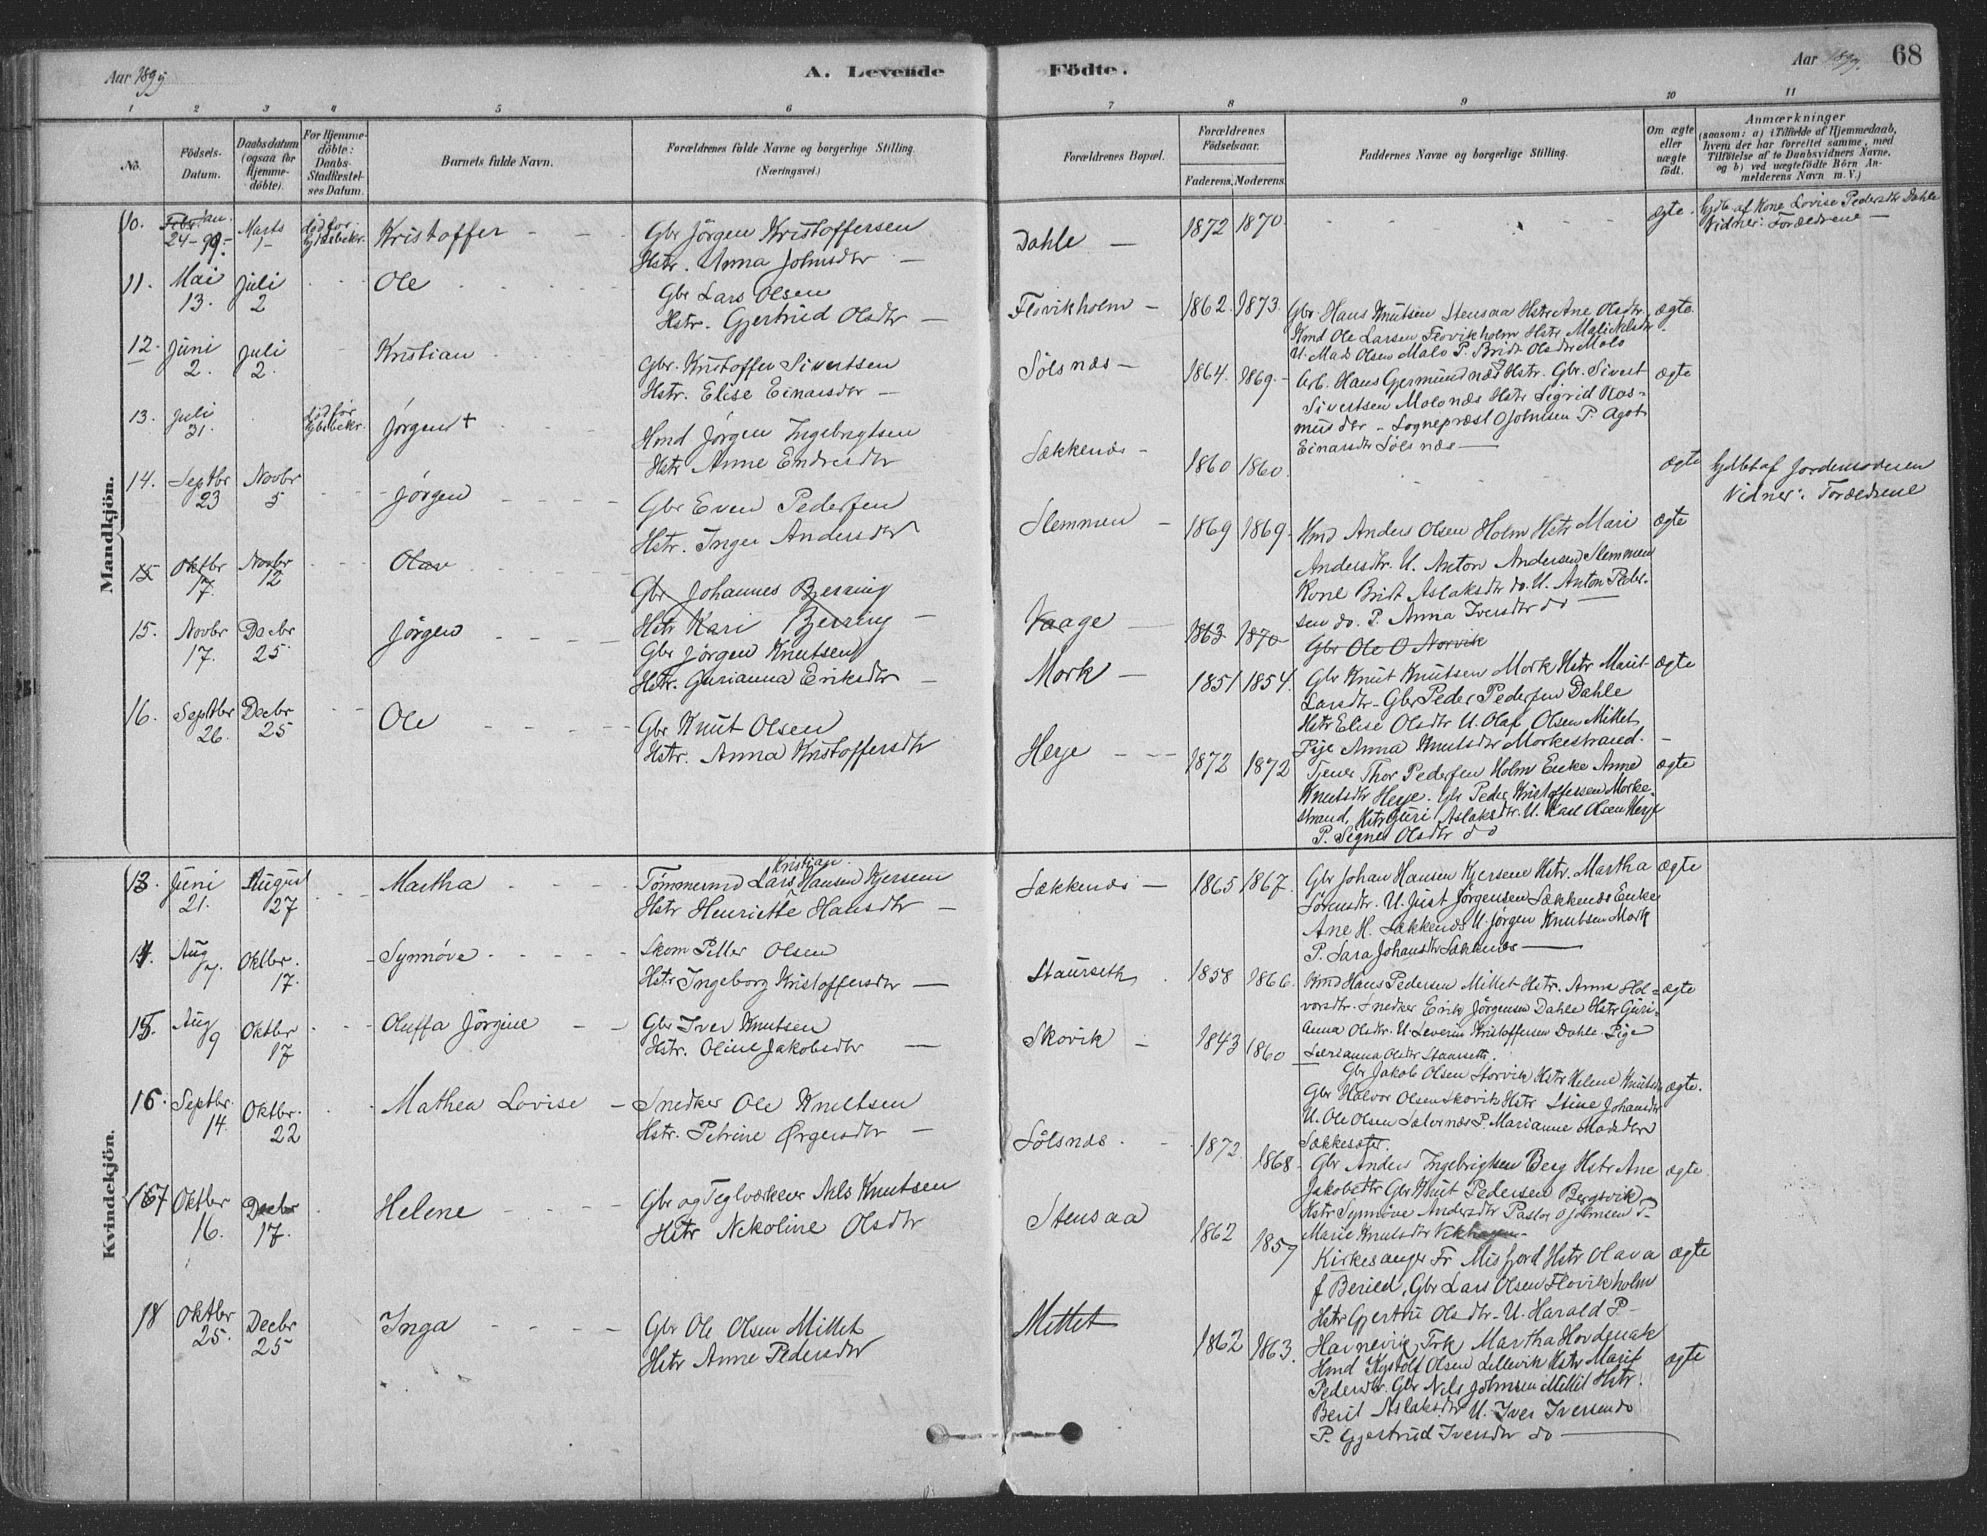 Aar 1899
A. Levende Födte.
Aar 1899. 68
1 2 3 4 5 6 7 8 9 10 11
No.
Födsels-Datum.
Daabsdatum (ogsaa for Hjemmedöbte).
For Hjemmedöbte: Daabs-Stadfæstelses Datum.
Barnets fulde Navn.
Forældrenes fulde Navne og borgerlige Stilling. (Næringsvei.)
Forældrenes Bopæl.
Forældrenes Födselsaar.
Faderens. Moderens.
Faddernes Navne og borgerlige Stilling.
Om ægte eller uægte födt.
Anmærkninger
(saasom: a) i Tilfælde af Hjemmedaab, hvem der har forrettet samme, med Tilföielse af to Daabsvidners Navne, og b) ved uægtefödte Börn Anmelderens Navn m. V.)
Mandkjön.
10. Jan. 24-99. Marts 1- död før Kristoffer
Gbr Jörgen Kristoffersen
Hstr. Anna Johnsdtr
Dahle 1872 1870 ægte. Hjdb af Kone Lovise Pedersdtr Dahle
Vidner: Forældrene
11. Mai 13. Juli 2 Ole
Gbr Lars Olsen
Hstr. Gjertrud Olsdtr
Flovikholm 1862. 1873. Gbr. Hans Knutsen Stensaa Hstr Ane Olsdtr. ægte.
Hmd Ole Larsen Flovikholm Hstr
U. Mads Olsen Malo P. Brit Olsdtr Malo
12. Juni 2. Juli 2. Kristian
Gbr. Kristoffer Sivertsen
Hstr. Elise Einarsdtr
Sölsnæs 1864. 1869. Arb. Hans Gjermundnæs Hstr. Gbr. Sivert ægte
Sivertsen Molsnæs Hstr Sigrid Ras-
musdtr - Sognepræst OJohnsen P. Agot
Einarsdtr Sölsnæs
13. Juli 31. död før Jørgen +
Hmd Jørgen Ingebrigtsen
Hstr Anne Endresdtr
Sækkenæs 1860 1860. ægte Hjdbt af Jordemoderen
Vidner: Forældrene
14. Septbr 23 Novbr 5 Jørgen
Gbr Even Pedersen
Hstr. Inger Andersdtr
Slemmen 1869 1869. Hmd Anders Olsen Holm Hstr Mari ægte
Andersdtr. U. Anton Andersen Slemmen
Kone Brit Aslaksdtr do. U. Anton Peder-
sen do. P. Anna Iversdtr do
15 Oktbr 17. Novbr 12 Olav
Gbr Johannes Bjerring
Hstr Kari Bjerring
Vaage 1863 1870 Gbr Ole O Norvik
15. Novbr 17. Decbr 25. Jørgen
Gbr Jørgen Knutsen
Hstr. Gurianna Eriksdtr
Mork 1851 1854. Gbr Knut Knutsen Mork Hstr Marit ægte
Larsdtr - Gbr Peder Pedersen Dahle
Hstr Elise Olsdtr U. Olaf Olsen Mittet
Pige Anna Knutsdtr Morkestrand.
16. Septbr 26. Decbr 25 Ole
Gbr Knut Olsen
Hstr. Anna Kristoffersdtr
Heje 1872 1872 Tjener Thor Pedersen Holm Enke Anne ægte
Knutsdtr Heje. Gbr Peder Kristoffersen Morke-
strand, Hstr Guri Aslaksdtr. U. Karl Olsen Heje
P. Signe Olsdtr do
Kvindekjön.
13. Juni 21. August 27 Martha
Tømmermd Lars Kristian Hansen Kjersem
Hstr Henriette Hansdtr
Sækkenæs 1865 1867. Gbr Johan Hansen Kjersem Hstr. Martha ægte
Sörensdtr. U. Just Jørgensen Sækkenæs Enke
Ane H. Sækkenæs U. Jørgen Knutsen Mork
P. Sara Johansdtr Sækkenæs
14. Aug 7. Oktbr. 17. Synnøve
Skom Petter Olsen
Hstr Ingeborg Kristoffersdtr
Staurseth 1858 1866. Hmd Hans Pedersen Mittet Hstr. Anne Hal- ægte
vorsdtr. Snedker Erik Jörgensen Dahle Hstr Guri-
anna Olsdtr. U. Severin Kristoffersen Dahle. Pige
Særianna Olsdtr Staurseth.
15. Aug 9 Oktbr 17 Oluffa Jörgine
Gbr Iver Knutsen
Hstr. Oline Jakobsdtr
Skovik 1843 1860 Gbr Jakob Olsen Storvik Hstr Helene Knutsdtr ægte.
Gbr Halvor Olsen Skovik Hstr Stine Johansdtr
U. Ole Olsen Sæternæs P. Marianne Madsdtr
Sækkesæter.
16. Septbr. 14. Oktbr. 22 Mathea Lovise
Snedker Ole Knutsen
Hstr. Petrine Ørgersdtr
Sölsnæs. 1872. 1868. Gbr Anders Ingebrigtsen Berg Hstr Ane ægte
Jakobsdtr Gbr Knut Pedersen Bergsvik
Hstr Synnöve Andersdtr Pastor OJohnsen P.
Marie Knutsdtr Vikhagen
17 Oktbr 16. Decbr 17. Helene
Gbr og Teglværkeier Nils Knutsen
Hstr Nekoline Olsdtr
Stensaa 1862 1859 Kirkesanger Fr Misfjord Hstr Olava ægte
f Berild, Gbr Lars Olsen Flovikholm
Hstr Gjertru Olsdtr. U. Harald P.
Havnevik Frk Martha Hovdenak
18 Oktbr 25. Decbr 25 Inga
Gbr Ole Olsen Mittet
Hstr Anne Pedersdtr
Mittet 1862 1863. Hmd Kystolf Olsen Lillevik Hstr Marit ægte
Pedersdtr. Gbr Nils Johnsen Mittet Hstr.
Berit Aslaksdtr U. Iver Iversen do
P. Gjertrud Iversdtr do